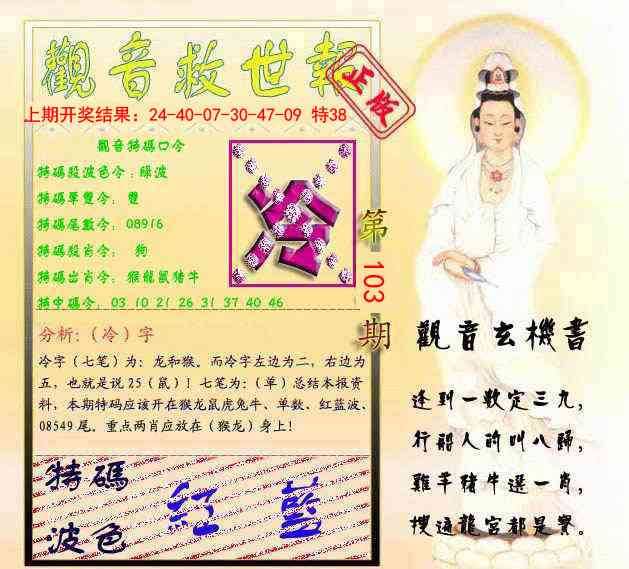 觀音救世報
正版
上期开奖结果：24-40-07-30-47-09 特38
觀音特碼口令
特碼殺波色令：綠波
特碼單雙令： 雙
特碼尾數令： 08916
特碼殺肖令： 狗
特碼出肖令： 猴龍鼠豬牛
特中碼令： 03 10 21 26 31 37 40 46
冷
第 103 期
分析：（冷）字
冷字（七笔）为：龙和猴。而冷字左边为二，右边为
五，也就是说 25（鼠）！七笔为：（单）总结本报资
料，本期特码应该开在猴龙鼠虎兔牛、单数、红蓝波、
08549 尾。重点两肖应放在（猴龙）身上！
特碼
波色
紅 藍
觀音玄機書
逢到一數定三九，
行船人的叫八歸，
雞羊豬牛選一肖，
摸通龍宮都是寶。